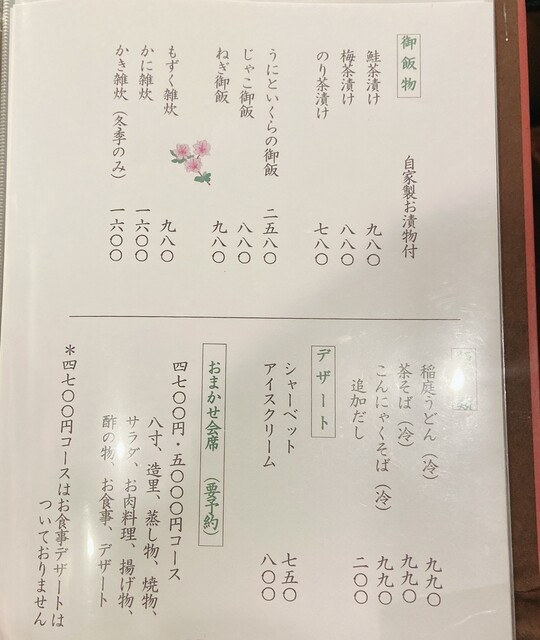 御飯物
自家製お漬物付
鮭茶漬け 九八〇
梅茶漬け 八八〇
のり茶漬け 七八〇
うにといくらの御飯 二五八〇
じゃこ御飯 八八〇
ねぎ御飯 九八〇
もずく雑炊 九八〇
かに雑炊 一六〇〇
かき雑炊(冬季のみ) 一六〇〇
類
稲庭うどん(冷) 九九〇
茶そば(冷) 九九〇
こんにゃくそば(冷) 九九〇
追加だし 二〇〇
デザート
シャーベット 七五〇
アイスクリーム 八〇〇
おまかせ会席(要予約)
四七〇〇円・五〇〇〇円コース
八寸、造里、蒸し物、焼物、
サラダ、お肉料理、揚げ物、
酢の物、お食事、デザート
*四七〇〇円コースはお食事デザートは
ついておりません